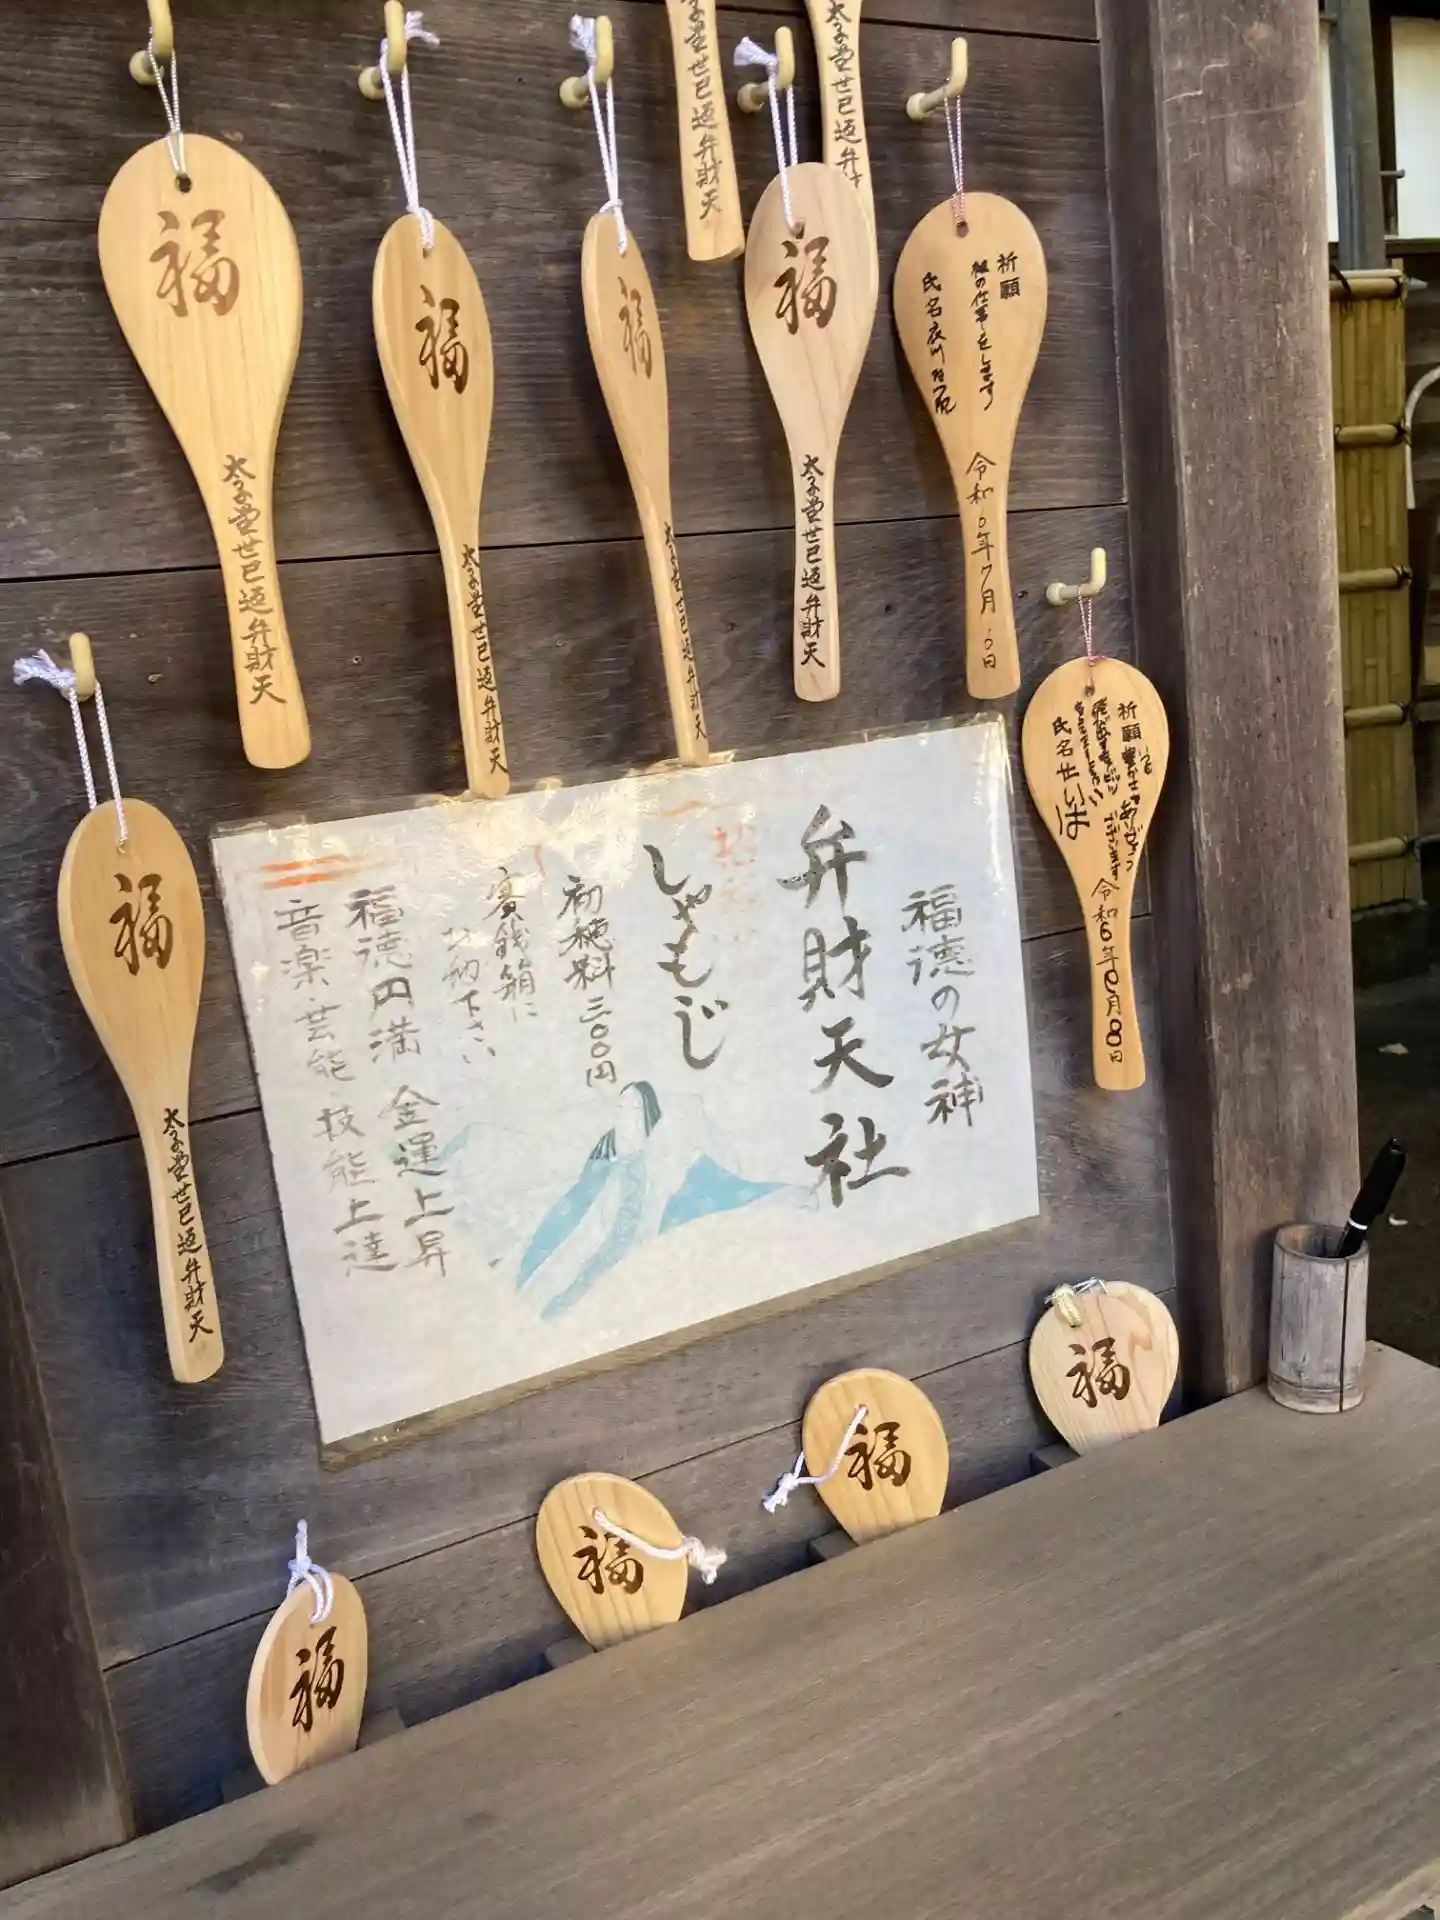 福
太子堂世田谷弁財天
福
太子堂世田谷弁財天
福
太子堂世田谷弁財天
太子堂世田谷弁財天
太子堂世田谷弁財天
福
太子堂世田谷弁財天
祈願
の仕事をします
氏名
令和6年7月
日
祈願
ございます
氏名
令和6年
月8日
福
太子堂世田谷弁財天
福徳の女神
弁財天社
しゃもじ
初穂料三〇〇円
賽銭箱に
お納下さい
福徳円満 金運上昇
音楽・芸能・技能上達
福
福
福
福